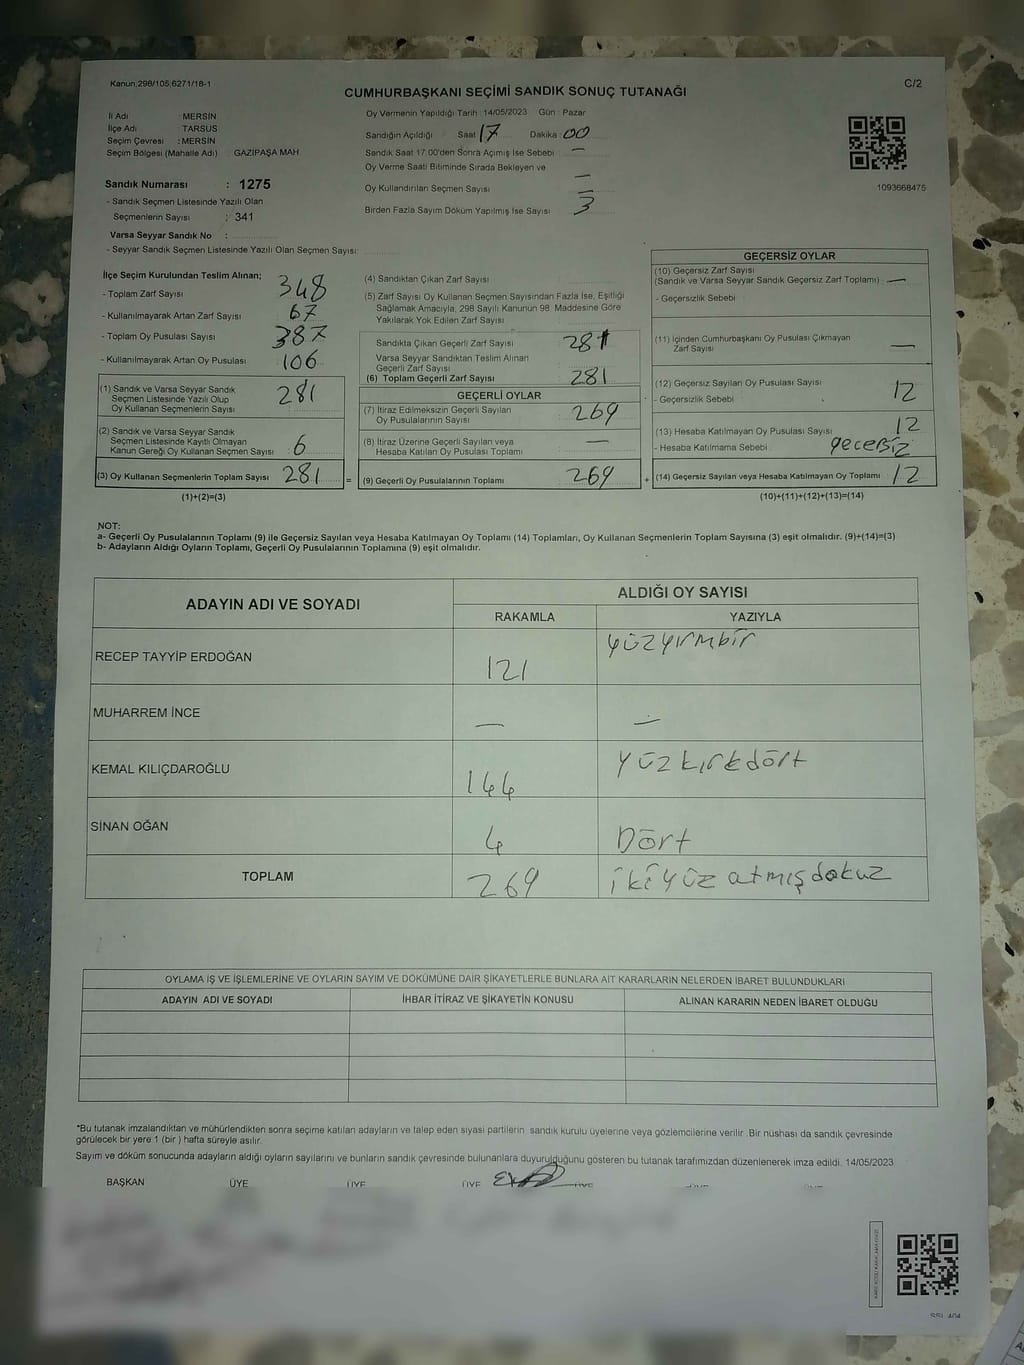 Kanun;298/105;6271/18-1
C/2
CUMHURBAŞKANI SEÇİMİ SANDIK SONUÇ TUTANAĞI
İl Adı : MERSİN
İlçe Adı : TARSUS
Seçim Çevresi : MERSİN
Seçim Bölgesi (Mahalle Adı) : GAZİPAŞA MAH
Sandık Numarası : 1275
- Sandık Seçmen Listesinde Yazılı Olan
Seçmenlerin Sayısı : 341
Varsa Seyyar Sandık No :
- Seyyar Sandık Seçmen Listesinde Yazılı Olan Seçmen Sayısı:
Oy Vermenin Yapıldığı Tarih : 14/05/2023 Gün : Pazar
Sandığın Açıldığı : Saat 17 Dakika 00
Sandık Saat 17.00'den Sonra Açımış İse Sebebi : —
Oy Verme Saati Bitiminde Sırada Bekleyen ve
Oy Kullandırılan Seçmen Sayısı : —
Birden Fazla Sayım Döküm Yapılmış İse Sayısı : 3
1093668475
İlçe Seçim Kurulundan Teslim Alınan;
- Toplam Zarf Sayısı : 348
- Kullanılmayarak Artan Zarf Sayısı : 67
- Toplam Oy Pusulası Sayısı : 387
- Kullanılmayarak Artan Oy Pusulası : 106
(1) Sandık ve Varsa Seyyar Sandık
Seçmen Listesinde Yazılı Olup
Oy Kullanan Seçmenlerin Sayısı : 281
(2) Sandık ve Varsa Seyyar Sandık
Seçmen Listesinde Kayıtlı Olmayan
Kanun Gereği Oy Kullanan Seçmen Sayısı : 6
(3) Oy Kullanan Seçmenlerin Toplam Sayısı : 281
(1)+(2)=(3)
(4) Sandıktan Çıkan Zarf Sayısı :
(5) Zarf Sayısı Oy Kullanan Seçmen Sayısından Fazla İse, Eşitliği
Sağlamak Amacıyla, 298 Sayılı Kanunun 98. Maddesine Göre
Yakılarak Yok Edilen Zarf Sayısı :
Sandıkta Çıkan Geçerli Zarf Sayısı : 281
Varsa Seyyar Sandıktan Teslim Alınan
Geçerli Zarf Sayısı :
(6) Toplam Geçerli Zarf Sayısı : 281
GEÇERLİ OYLAR
(7) İtiraz Edilmeksizin Geçerli Sayılan
Oy Pusulalarının Sayısı : 269
(8) İtiraz Üzerine Geçerli Sayılan veya
Hesaba Katılan Oy Pusulası Toplamı : —
= (9) Geçerli Oy Pusulalarının Toplamı : 269
GEÇERSİZ OYLAR
(10) Geçersiz Zarf Sayısı
(Sandık ve Varsa Seyyar Sandık Geçersiz Zarf Toplamı) : —
- Geçersizlik Sebebi :
(11) İçinden Cumhurbaşkanı Oy Pusulası Çıkmayan
Zarf Sayısı : —
(12) Geçersiz Sayılan Oy Pusulası Sayısı : 12
- Geçersizlik Sebebi :
(13) Hesaba Katılmayan Oy Pusulası Sayısı : 12
- Hesaba Katılmama Sebebi : geçersiz
+ (14) Geçersiz Sayılan veya Hesaba Katılmayan Oy Toplamı : 12
(10)+(11)+(12)+(13)=(14)
NOT:
a- Geçerli Oy Pusulalarının Toplamı (9) ile Geçersiz Sayılan veya Hesaba Katılmayan Oy Toplamı (14) Toplamları, Oy Kullanan Seçmenlerin Toplam Sayısına (3) eşit olmalıdır. (9)+(14)=(3)
b- Adayların Aldığı Oyların Toplamı, Geçerli Oy Pusulalarının Toplamına (9) eşit olmalıdır.
ADAYIN ADI VE SOYADI
ALDIĞI OY SAYISI
RAKAMLA YAZIYLA
RECEP TAYYİP ERDOĞAN 121 yüzyirmbir
MUHARREM İNCE — —
KEMAL KILIÇDAROĞLU 144 yüzkırkdört
SİNAN OĞAN 4 Dört
TOPLAM 269 ikiyüz atmışdokuz
OYLAMA İŞ VE İŞLEMLERİNE VE OYLARIN SAYIM VE DÖKÜMÜNE DAİR ŞİKAYETLERLE BUNLARA AİT KARARLARIN NELERDEN İBARET BULUNDUKLARI
ADAYIN ADI VE SOYADI İHBAR İTİRAZ VE ŞİKAYETİN KONUSU ALINAN KARARIN NEDEN İBARET OLDUĞU
*Bu tutanak imzalandıktan ve mühürlendikten sonra seçime katılan adayların ve talep eden siyasi partilerin, sandık kurulu üyelerine veya gözlemcilerine verilir. Bir nüshası da sandık çevresinde
görülecek bir yere 1 (bir ) hafta süreyle asılır.
Sayım ve döküm sonucunda adayların aldığı oyların sayılarını ve bunların sandık çevresinde bulunanlara duyurulduğunu gösteren bu tutanak tarafımızdan düzenlenerek imza edildi. 14/05/2023
BAŞKAN ÜYE ÜYE ÜYE ÜYE